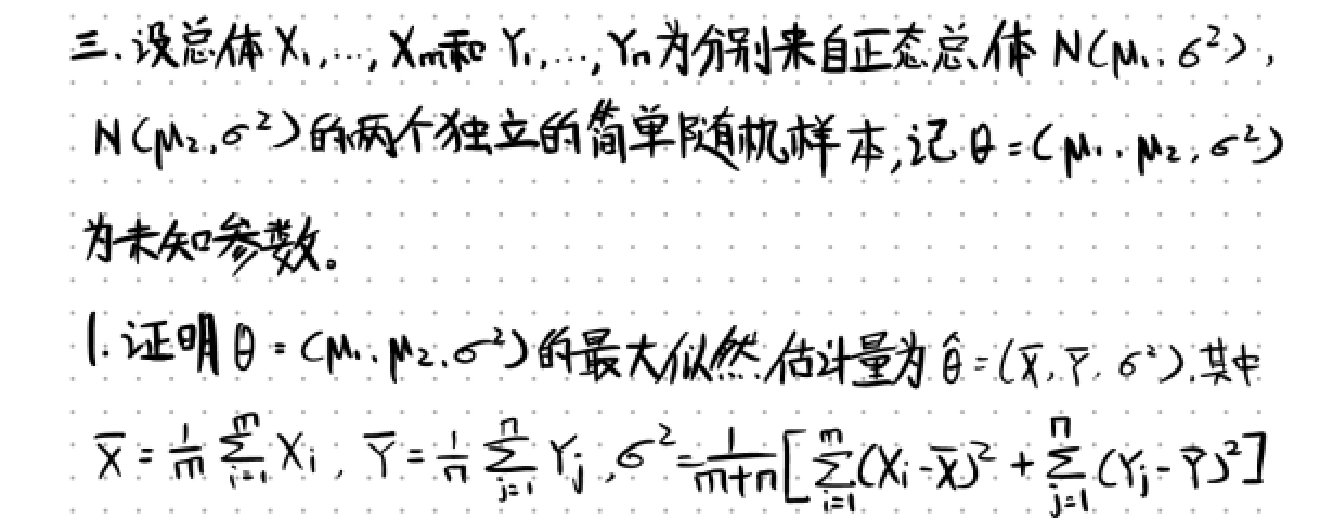 三.设总体X₁,…,Xₘ和Y₁,…,Yₙ为分别来自正态总体N(μ₁,σ²),
N(μ₂,σ²)的两个独立的简单随机样本,记θ=(μ₁,μ₂,σ²)
为未知参数。
1.证明θ=(μ₁,μ₂,σ²)的最大似然估计量为θ̂=(X̄,Ȳ,σ²),其中
X̄=1/m ∑_{i=1}^{m} Xᵢ, Ȳ=1/n ∑_{j=1}^{n} Yⱼ,σ²=1/(m+n)[∑_{i=1}^{m}(Xᵢ-X̄)²+∑_{j=1}^{n}(Yⱼ-Ȳ)²]